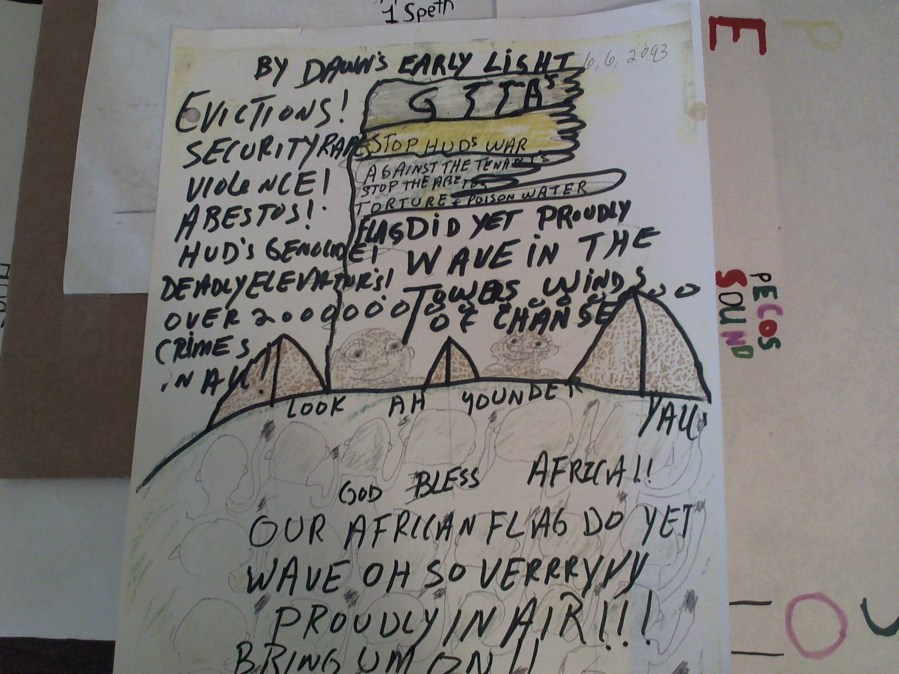 1 Speth
BY DAWN'S EARLY LIGHT
EVICTIONS!
SECURITY RAPES
VIOLENCE!
ABESTOS!
HUD'S GENOCIDE!
DEADLY ELEVATOR'S!
OVER 2000000000000000
CRIMES
IN ALL!
GTTA'S
STOP HUDS WAR
AGAINST THE TENANTS
STOP THE ABETOS
TORTURE & POISON WATER
FLAG DID YET PROUDLY
WAVE IN THE
TOWERS WINDS
OF CHANGE
LOOK AH YOUNDER
YALL
GOD BLESS AFRICA!!
OUR AFRICAN FLAG DO YET
WAVE OH SO VERRRYYY
PROUDLY IN AIR!!!
BRING UM ON!!
P
E
PECOS
SOUND
O